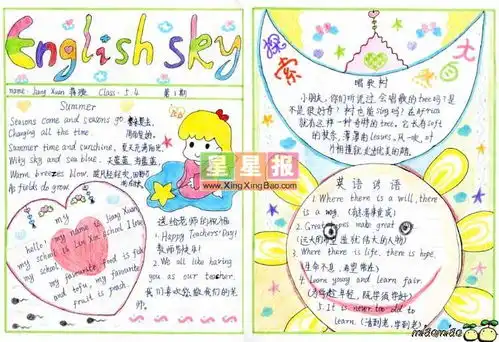 English sky
name: Jang Xuan 蒋璇 Class: 5.4 第1期
Summer
Seasons come and seasons go,
Changing all the time.
Summer time and sunshine, 夏天充满阳光,
Wity sky and sea blue. 天蓝蓝, 海蓝蓝.
Warm breezes blow.
As fields do grow
hello! my name is Jiang Xuan.
my school is Lin Xin school I love
my school.
my favourite food is fish
and tofu, my favourite
fruit is peach.
送给老师的祝福
1. Happy Teachers' Day!
教师节快乐!
2. We all like having
you as our teacher.
我们喜欢您做我们的老
师。
星星报
www.XingXingBao.com
探索
大
唱歌树
小朋友, 你们听说过会唱歌的tree吗?是
不是很好奇? 树也能sing吗? 在Africa
就有这样一种奇特的tree, 它长有细长
的枝条, 薄薄的leaves, 风一吹, 叶
片相撞就发出优美的歌.
英语谚语
1. Where there is a will, there
is a way (有志者事竟成)
2. Great hopes make great
(远大的希望造就伟大的人物)
3. Where there is life, there is hope.
(生命不息, 希望常在)
4. Learn young and learn fair.
(为学趁年轻, 既学须学好)
5. It is never too old to
learn. (活到老, 学到老)
miaomiao